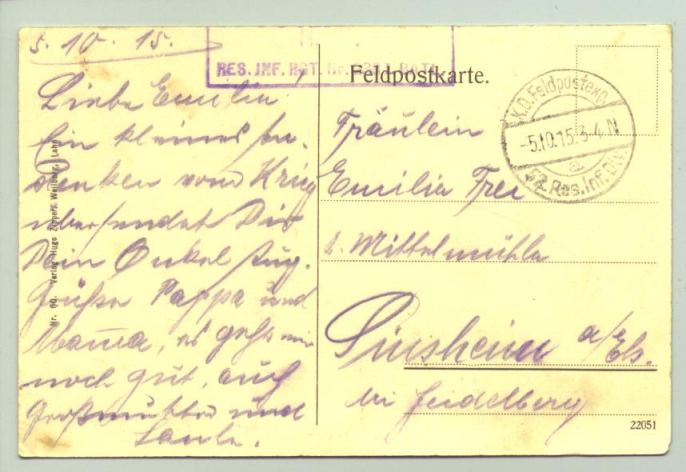 5.10.15.
RES. INF. RGT. Nr.
Feldpostkarte.
K.D. Feldpostexp.
-5.10.15. 3-4 N
a
52. Res. Inf. Div.
Liebe Emilia
Ein kleines An-
denken vom Krieg
übersendet Dir
Dein Onkel Aug.
Grüße Pappa und
Mama, es geht mir
noch gut, auch
Großmutter und
Fräulein
Emilia Frei
z. Mittelmühle
Sinsheim a/Els.
bei Heidelberg
22051